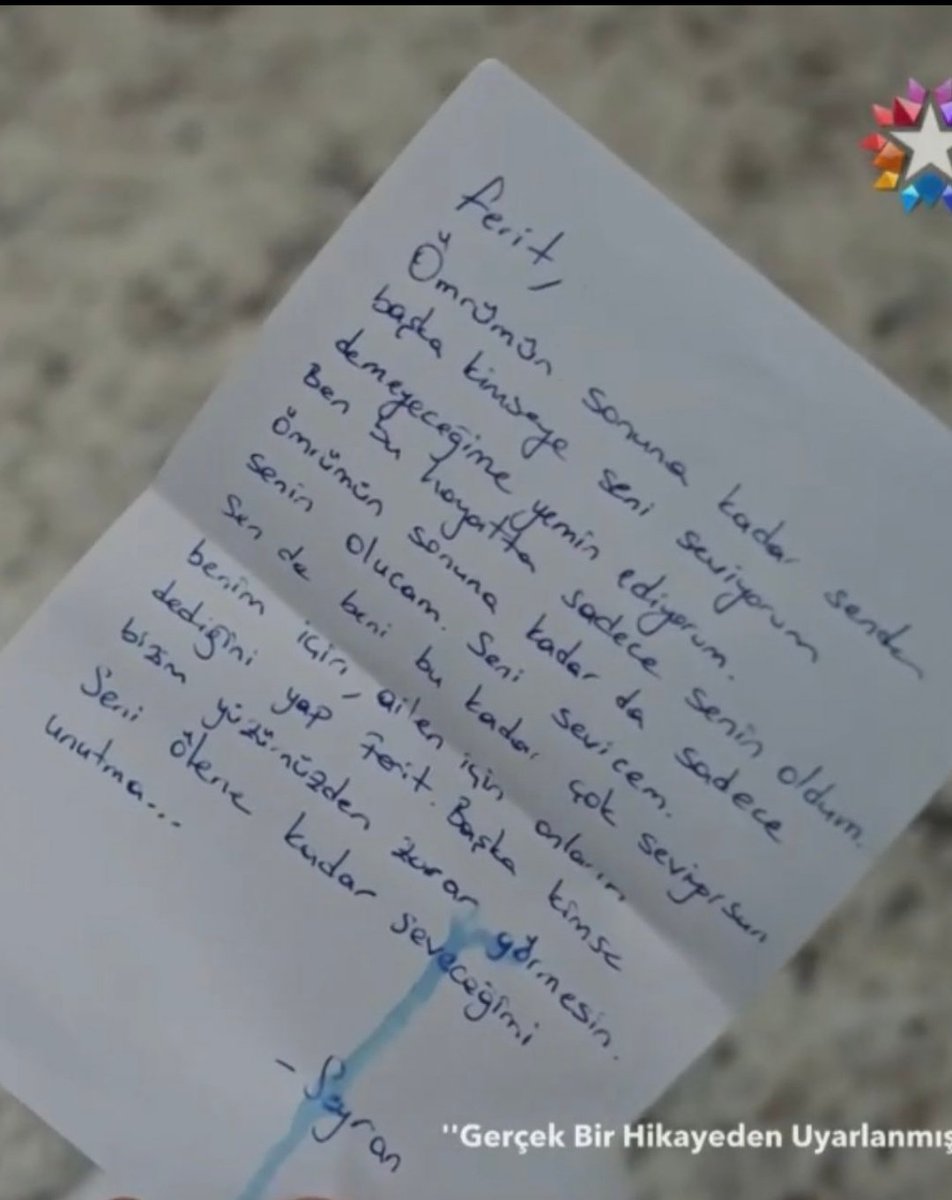 Ferit,
Ömrümün sonuna kadar senden
başka kimseye seni seviyorum
demeyeceğime yemin ediyorum.
Ben bu hayatta sadece senin oldum.
Ömrümün sonuna kadar da sadece
senin olucam. Seni sevicem.
Sen de beni bu kadar çok seviyorsun
benim için, ailen için onların
dediğini yap Ferit. Başka kimse
bizim yüzümüzden zarar görmesin.
Seni ölene kadar seveceğimi
unutma...
- Seyran
"Gerçek Bir Hikayeden Uyarlanmış